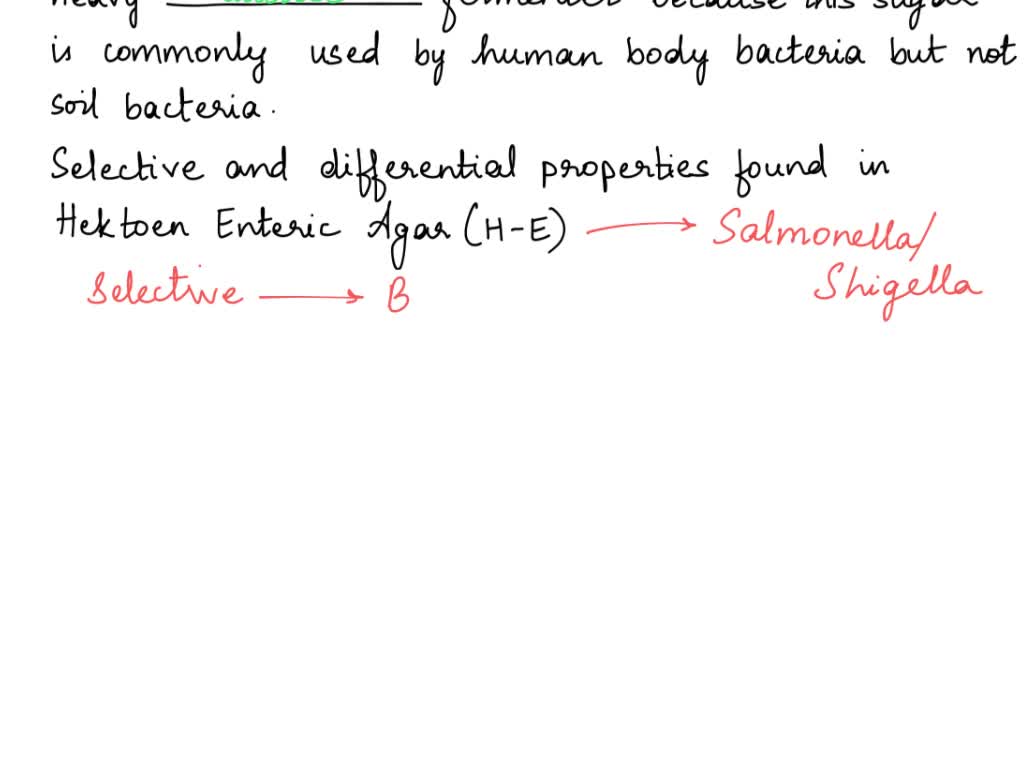 heavy fermenter because this sugar
is commonly used by human body bacteria but not
soil bacteria.
Selective and differential properties found in
Hektoen Enteric Agar (H-E) → Salmonella/
Shigella
Selective → B